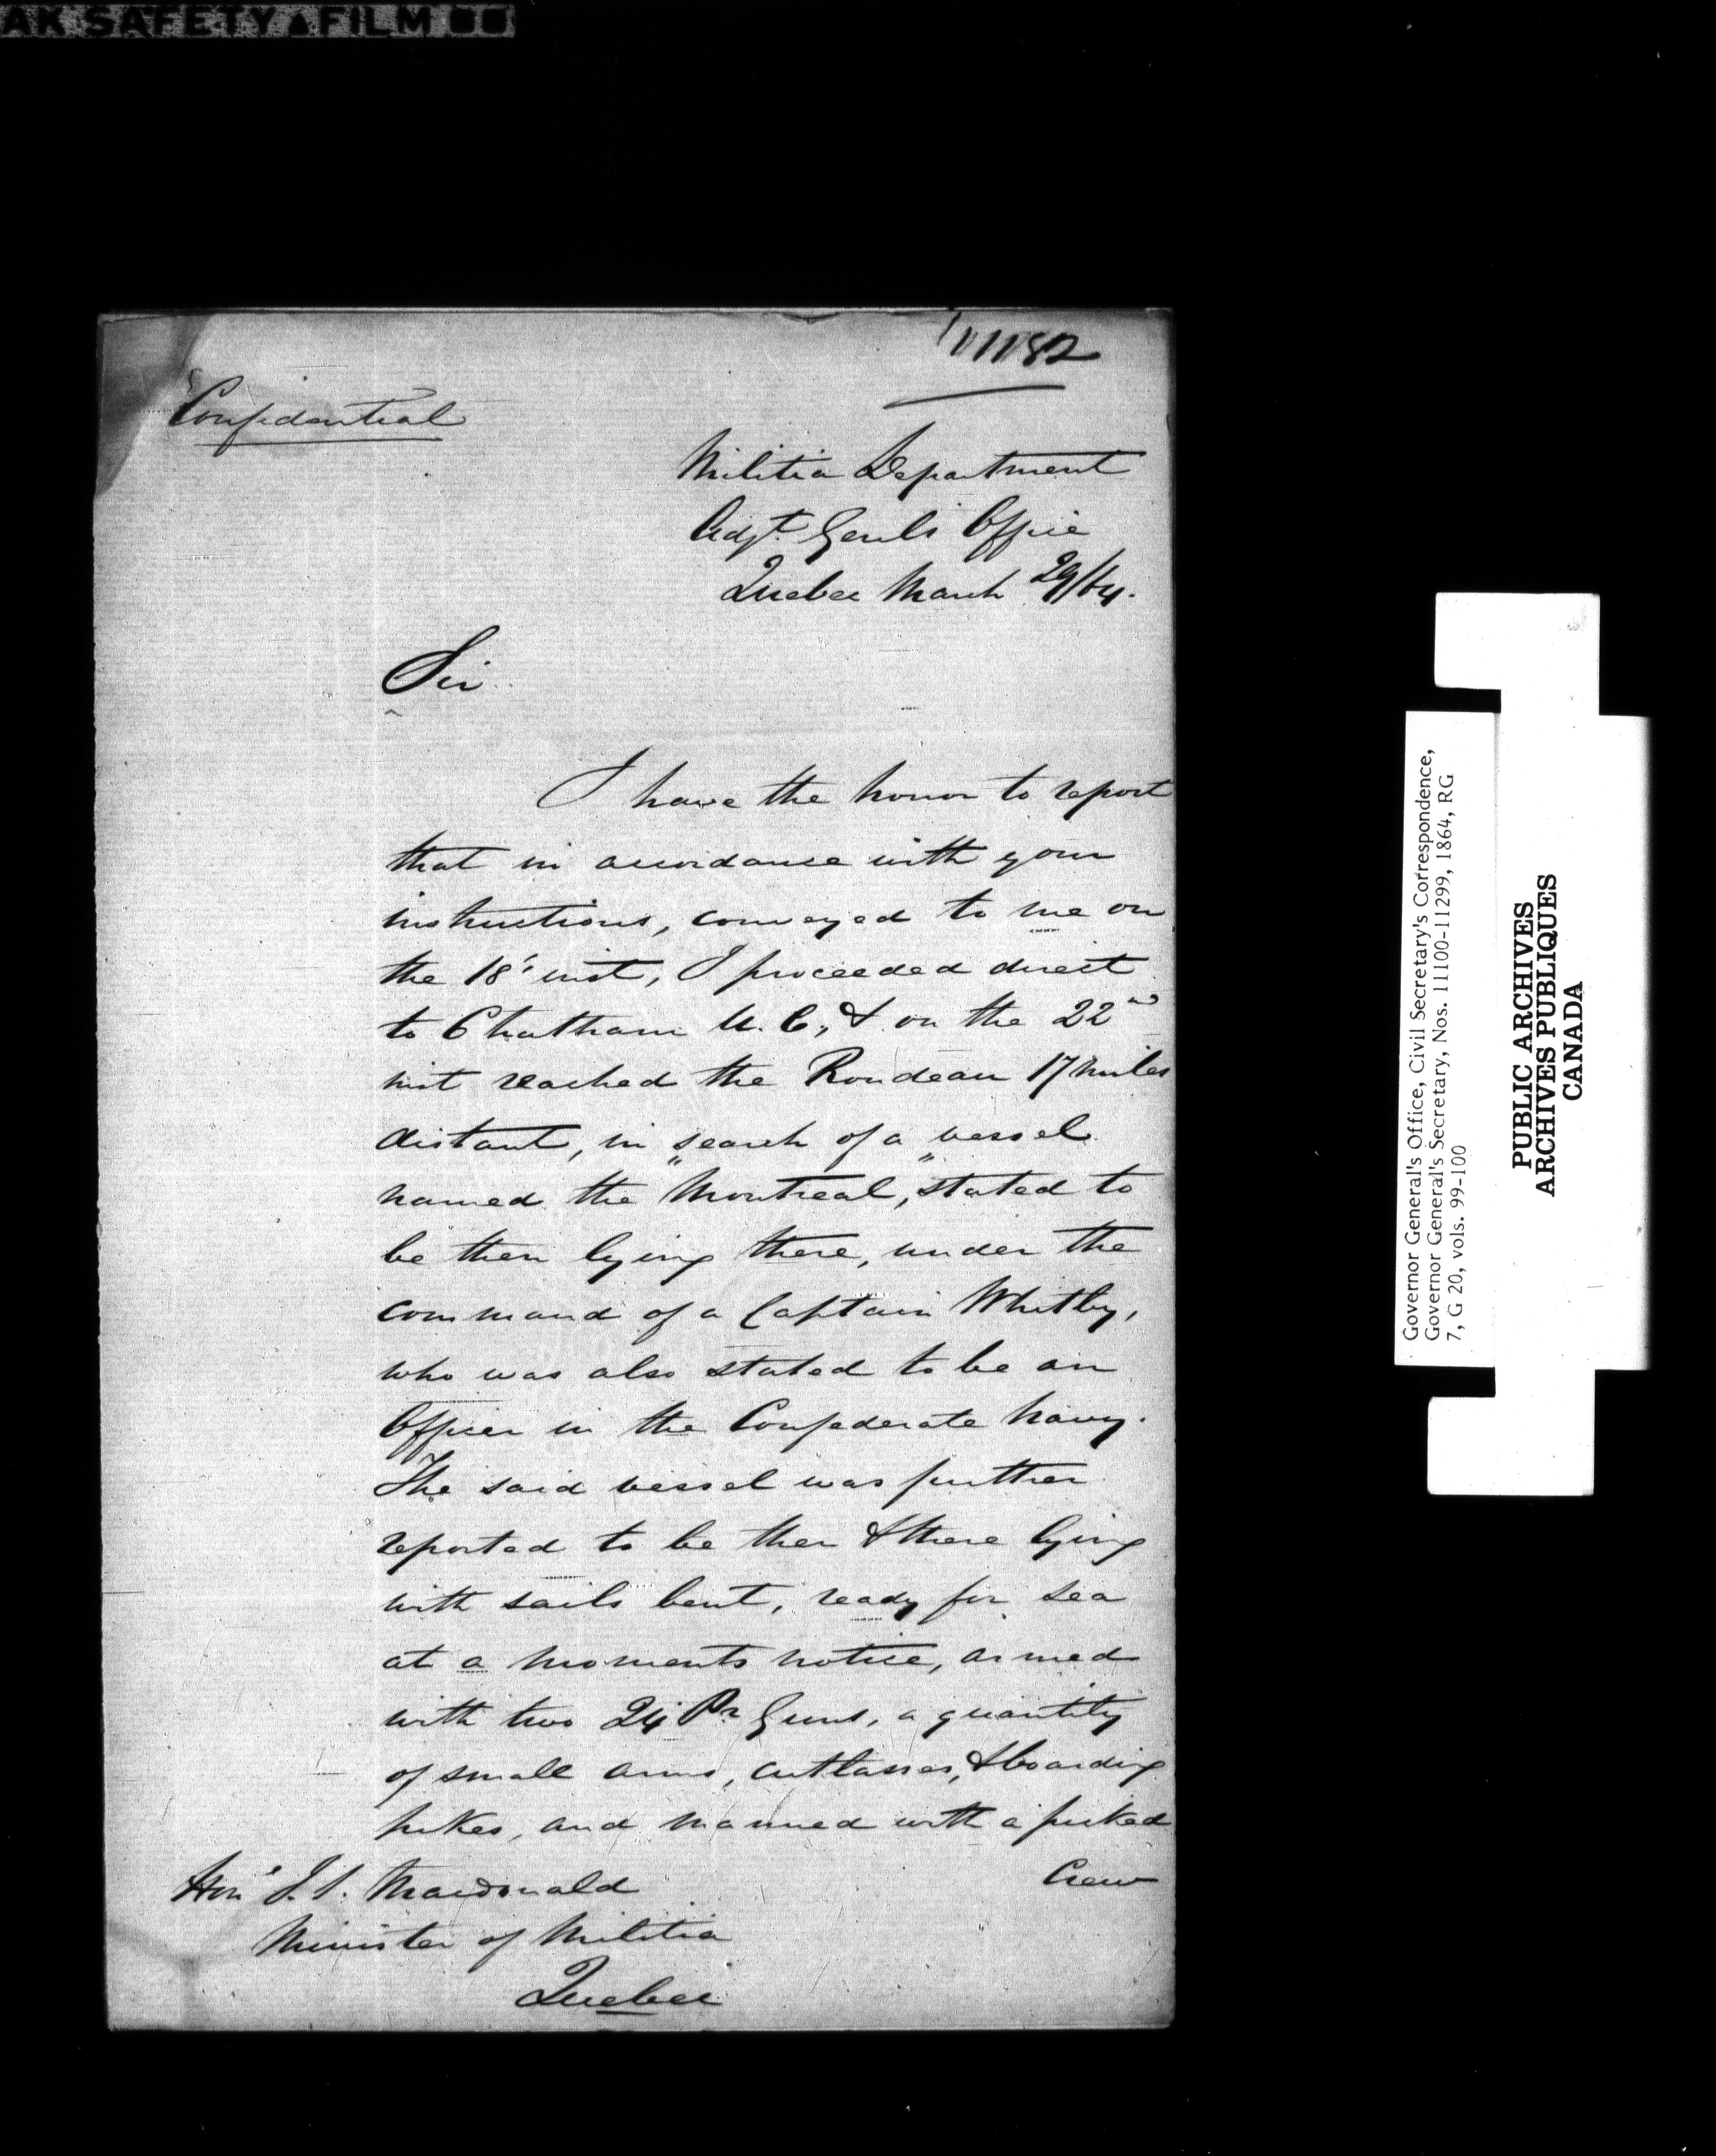 AK SAFETY FILM
11182
Confidential
Militia Department
Adjt. Genls Office
Quebec March 29/64.
Sir
I have the honor to report
that in accordance with your
instructions, conveyed to me on
the 18' inst, I proceeded direct
to Chatham U. C., & on the 22nd
inst reached the Rondeau 17 miles
distant, in search of a vessel
named the "Montreal," stated to
be then lying there, under the
command of a Captain Whitby,
who was also stated to be an
Officer in the Confederate Navy.
The said vessel was further
reported to be then & there lying
with sails bent, ready for sea
at a moments notice, armed
with two 24 Pr Guns, a quantity
of small arms, cutlasses, & boarding
pikes, and manned with a picked
Crew
Hon' J. S. Macdonald
Minister of Militia
Quebec
Governor General's Office, Civil Secretary's Correspondence,
Governor General's Secretary, Nos. 11100-11299, 1864, RG
7, G 20, vols. 99-100
PUBLIC ARCHIVES
ARCHIVES PUBLIQUES
CANADA